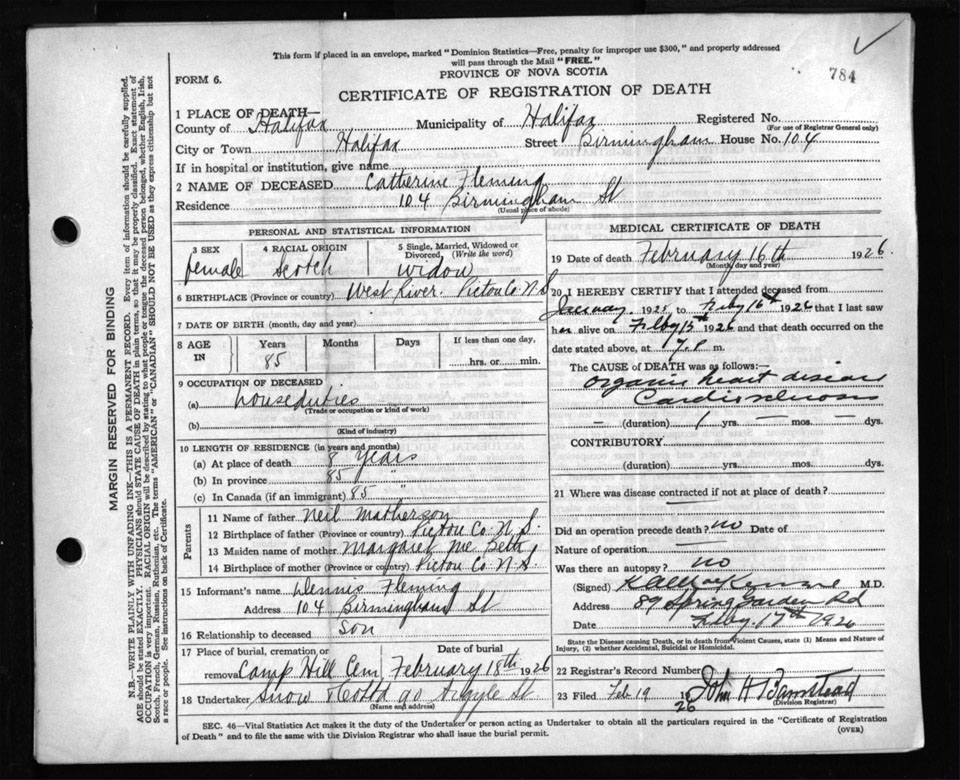 This form if placed in an envelope, marked "Dominion Statistics—Free, penalty for improper use $300," and properly addressed
will pass through the Mail "FREE."
784
FORM 6.
PROVINCE OF NOVA SCOTIA
CERTIFICATE OF REGISTRATION OF DEATH
1 PLACE OF DEATH—
County of Halifax Municipality of Halifax Registered No.
(For use of Registrar General only)
City or Town Halifax Street Birmingham House No. 104
If in hospital or institution, give name
2 NAME OF DECEASED Catherine Fleming
Residence 104 Birmingham St
(Usual place of abode)
PERSONAL AND STATISTICAL INFORMATION
3 SEX 4 RACIAL ORIGIN 5 Single, Married, Widowed or
Divorced (Write the word)
female Scotch widow
6 BIRTHPLACE (Province or country) West River. Pictou Co. N.S.
7 DATE OF BIRTH (month, day and year)
8 AGE IN Years Months Days If less than one day,
85 hrs. or min.
9 OCCUPATION OF DECEASED
(a) house duties
(Trade or occupation or kind of work)
(b)
(Kind of industry)
10 LENGTH OF RESIDENCE (in years and months)
(a) At place of death 8 years
(b) In province 85 "
(c) In Canada (if an immigrant) 85 "
Parents
11 Name of father Neil Matherson
12 Birthplace of father (Province or country) Pictou Co. N.S.
13 Maiden name of mother Margaret Mc Beth
14 Birthplace of mother (Province or country) Pictou Co. N.S.
15 Informant's name Dennis Fleming
Address 104 Birmingham St
16 Relationship to deceased son
17 Place of burial, cremation or Date of burial
removal Camp Hill Cem February 18th 1926
18 Undertaker Snow & Co Ltd 90 Argyle St
(Name and address)
MEDICAL CERTIFICATE OF DEATH
19 Date of death February 16th 1926
(Month, day and year)
20 I HEREBY CERTIFY that I attended deceased from
January 1925 to Feby 16th 1926 that I last saw
her alive on Feby 15th 1926 and that death occurred on
date stated above, at m.
The CAUSE OF DEATH was as follows:—
Organic heart disease
Cardiosclerosis
(duration) 1 yrs. mos. dys.
CONTRIBUTORY
(duration) yrs. mos. dys.
21 Where was disease contracted if not at place of death?
Did an operation precede death? no Date of
Nature of operation
Was there an autopsy? no
(Signed) MacKenzie M.D.
Address 89 Spring Garden Rd
Date Feby. 17th 1926
State the Disease causing Death, or in death from Violent Causes, state (1) Means and Nature of
Injury, (2) whether Accidental, Suicidal or Homicidal.
22 Registrar's Record Number
23 Filed Feb 19 1926 John H Barnstead
(Division Registrar)
SEC. 46—Vital Statistics Act makes it the duty of the Undertaker or person acting as Undertaker to obtain all the particulars required in the "Certificate of Registration
of Death" and to file the same with the Division Registrar who shall issue the burial permit.
(OVER)
MARGIN RESERVED FOR BINDING
N.B.—WRITE PLAINLY WITH UNFADING INK—THIS IS A PERMANENT RECORD. Every item of information should be carefully supplied.
AGE should be stated EXACTLY. PHYSICIANS should STATE CAUSE OF DEATH in plain terms, so that it may be properly classified. Exact statement of
OCCUPATION is very important. RACIAL ORIGIN will be described by stating to what people or tongue the deceased person belonged, whether English, Irish,
Scotch, French, German, Russian, Ruthenian, etc. The terms "AMERICAN" or "CANADIAN" SHOULD NOT BE USED as they express citizenship but not
a race or people. See instructions on back of Certificate.